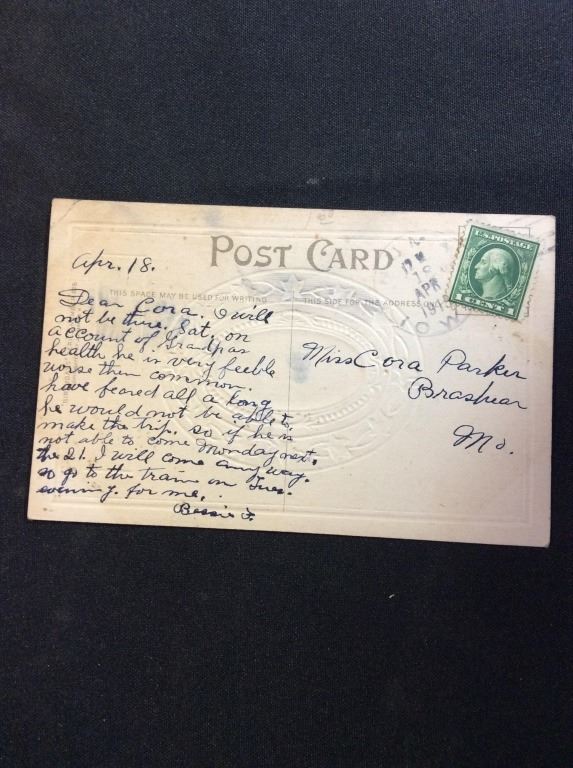 POST CARD
THIS SPACE MAY BE USED FOR WRITING
THIS SIDE FOR THE ADDRESS
U.S. POSTAGE
1 CENT 1
APR
191
Apr. 18.
Dear Cora. I will
not be there Sat. on
account of Grandpas
health he is very feeble
worse then common.
have feared all a long
he would not be able to
make the trip. so if he is
not able to come Monday next,
the 21. I will come any way.
so go to the train on Tues.
evening. for me.
Bessie F.
Miss Cora Parker
Brashear
Mo.